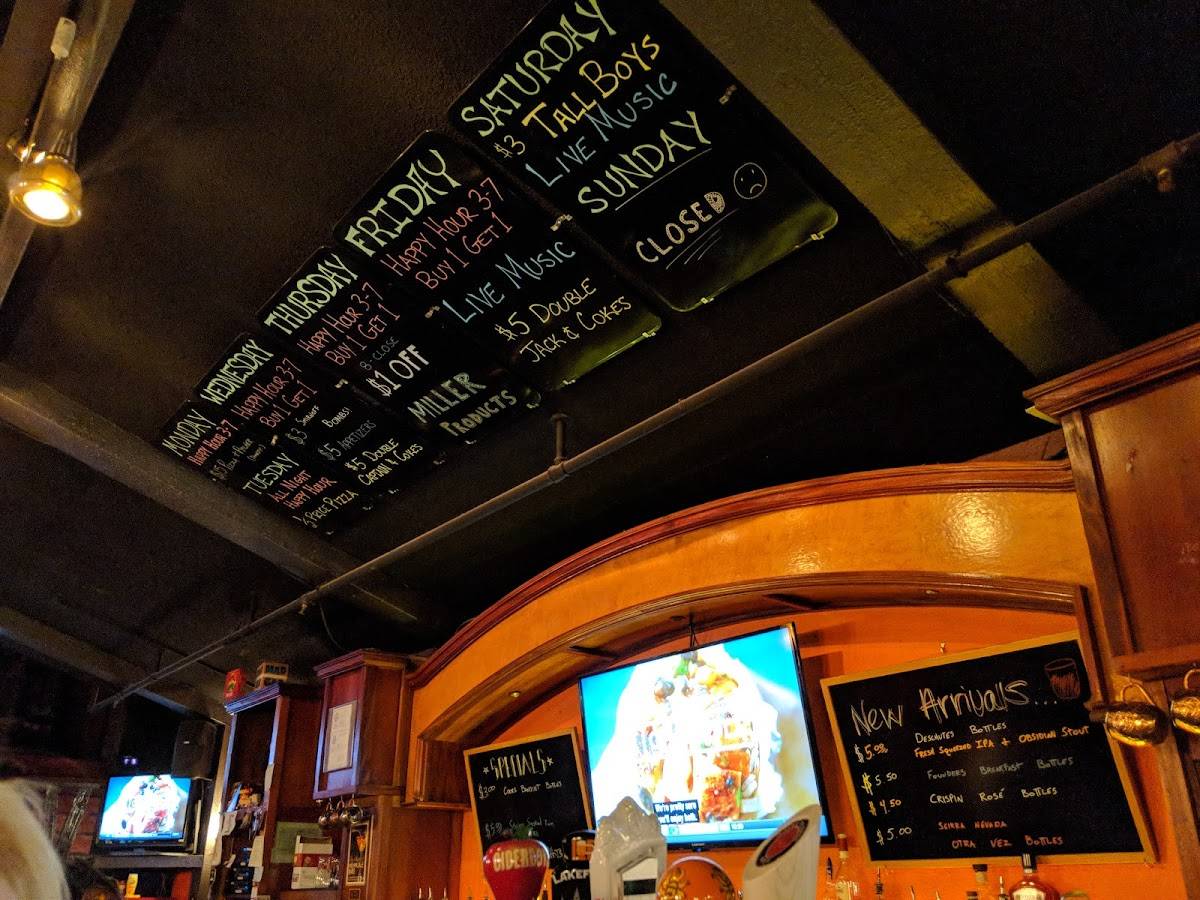 MONDAY
HAPPY HOUR 3-7
TUESDAY
ALL NIGHT
HAPPY HOUR
½ PRICE PIZZA
WEDNESDAY
HAPPY HOUR 3-7
BUY 1 GET 1
$3
BOMBS!
$5 APPETIZERS
$5 DOUBLE
CAPTAIN & COKES
THURSDAY
HAPPY HOUR 3-7
BUY 1 GET 1
8-CLOSE
$1 OFF
MILLER
PRODUCTS
FRIDAY
HAPPY HOUR 3-7
BUY 1 GET 1
LIVE MUSIC
$5 DOUBLE
JACK & COKES
SATURDAY
$3 TALL BOYS
LIVE MUSIC
SUNDAY
CLOSED
*SPECIALS*
$3.00 COORS BANQUET BOTTLES
We're pretty sure
you'll enjoy both.
New Arrivals...
$5.00 DESCHUTES BOTTLES
FRESH SQUEEZED IPA + OBSIDIAN STOUT
$5.50 FOUNDERS BREAKFAST BOTTLES
$4.50 CRISPIN ROSÉ BOTTLES
$5.00 SEIRRA NEVADA
OTRA VEZ BOTTLES
CIDERBOYS
LAKEF